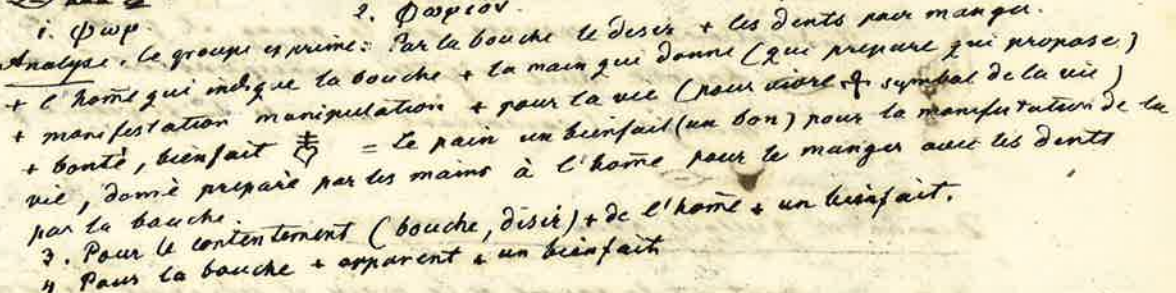 1. φωρ. 2. Φωριον.
Analyse. le groupe exprime: Par la bouche le desir + les dents pour manger.
+ l'hom̄e qui indique la bouche + la main qui donne (qui prepare qui propose)
+ manifestation manipulation + pour la vie (pour vivre ☥ symbol de la vie)
+ bonté, bienfait = Le pain un bienfait (un bon) pour la manifestation de la
vie, donné preparé par les mains à l'hom̄e pour le manger avec les dents
par la bouche.
3. Pour le contentement (bouche, désir) + de l'hom̄e + un bienfait.
4 Pour la bouche + apparent + un bienfait